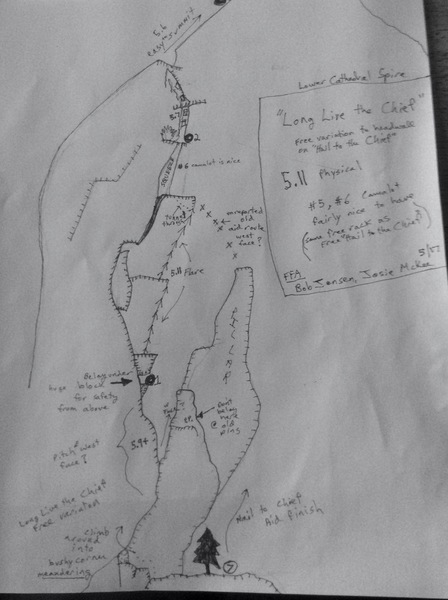 5.6
easy to summit
Lower Cathedral Spire
"Long Live the Chief"
Free variation to headwall
on "Hail to the Chief"
5.11 Physical
#5, #6 camalot
fairly nice to have
(same free rack as
Free "Hail to the Chief")
FFA
Bob Jensen, Josie McKee
2
#6 camalot is nice
squeeze
Tunnel
through
unreported
old
aid route
west
face?
5.11 Flare
PILLAR
Belay under
huge block
for safety
from above
1
5.9+
Pitch of West
face?
Don't
belay
here
@ old
pins
Long Live the Chief
Free variation
climb
around
into
bushy corner
meandering
Hail to Chief
Aid finish
7